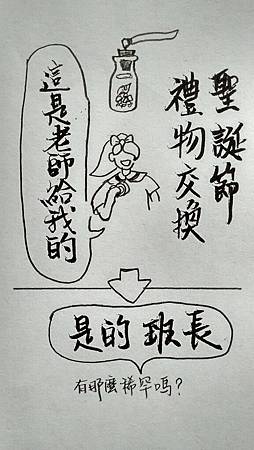 聖誕節
禮物交換
這是老師給我的
是的 班長
有那麼稀罕嗎?